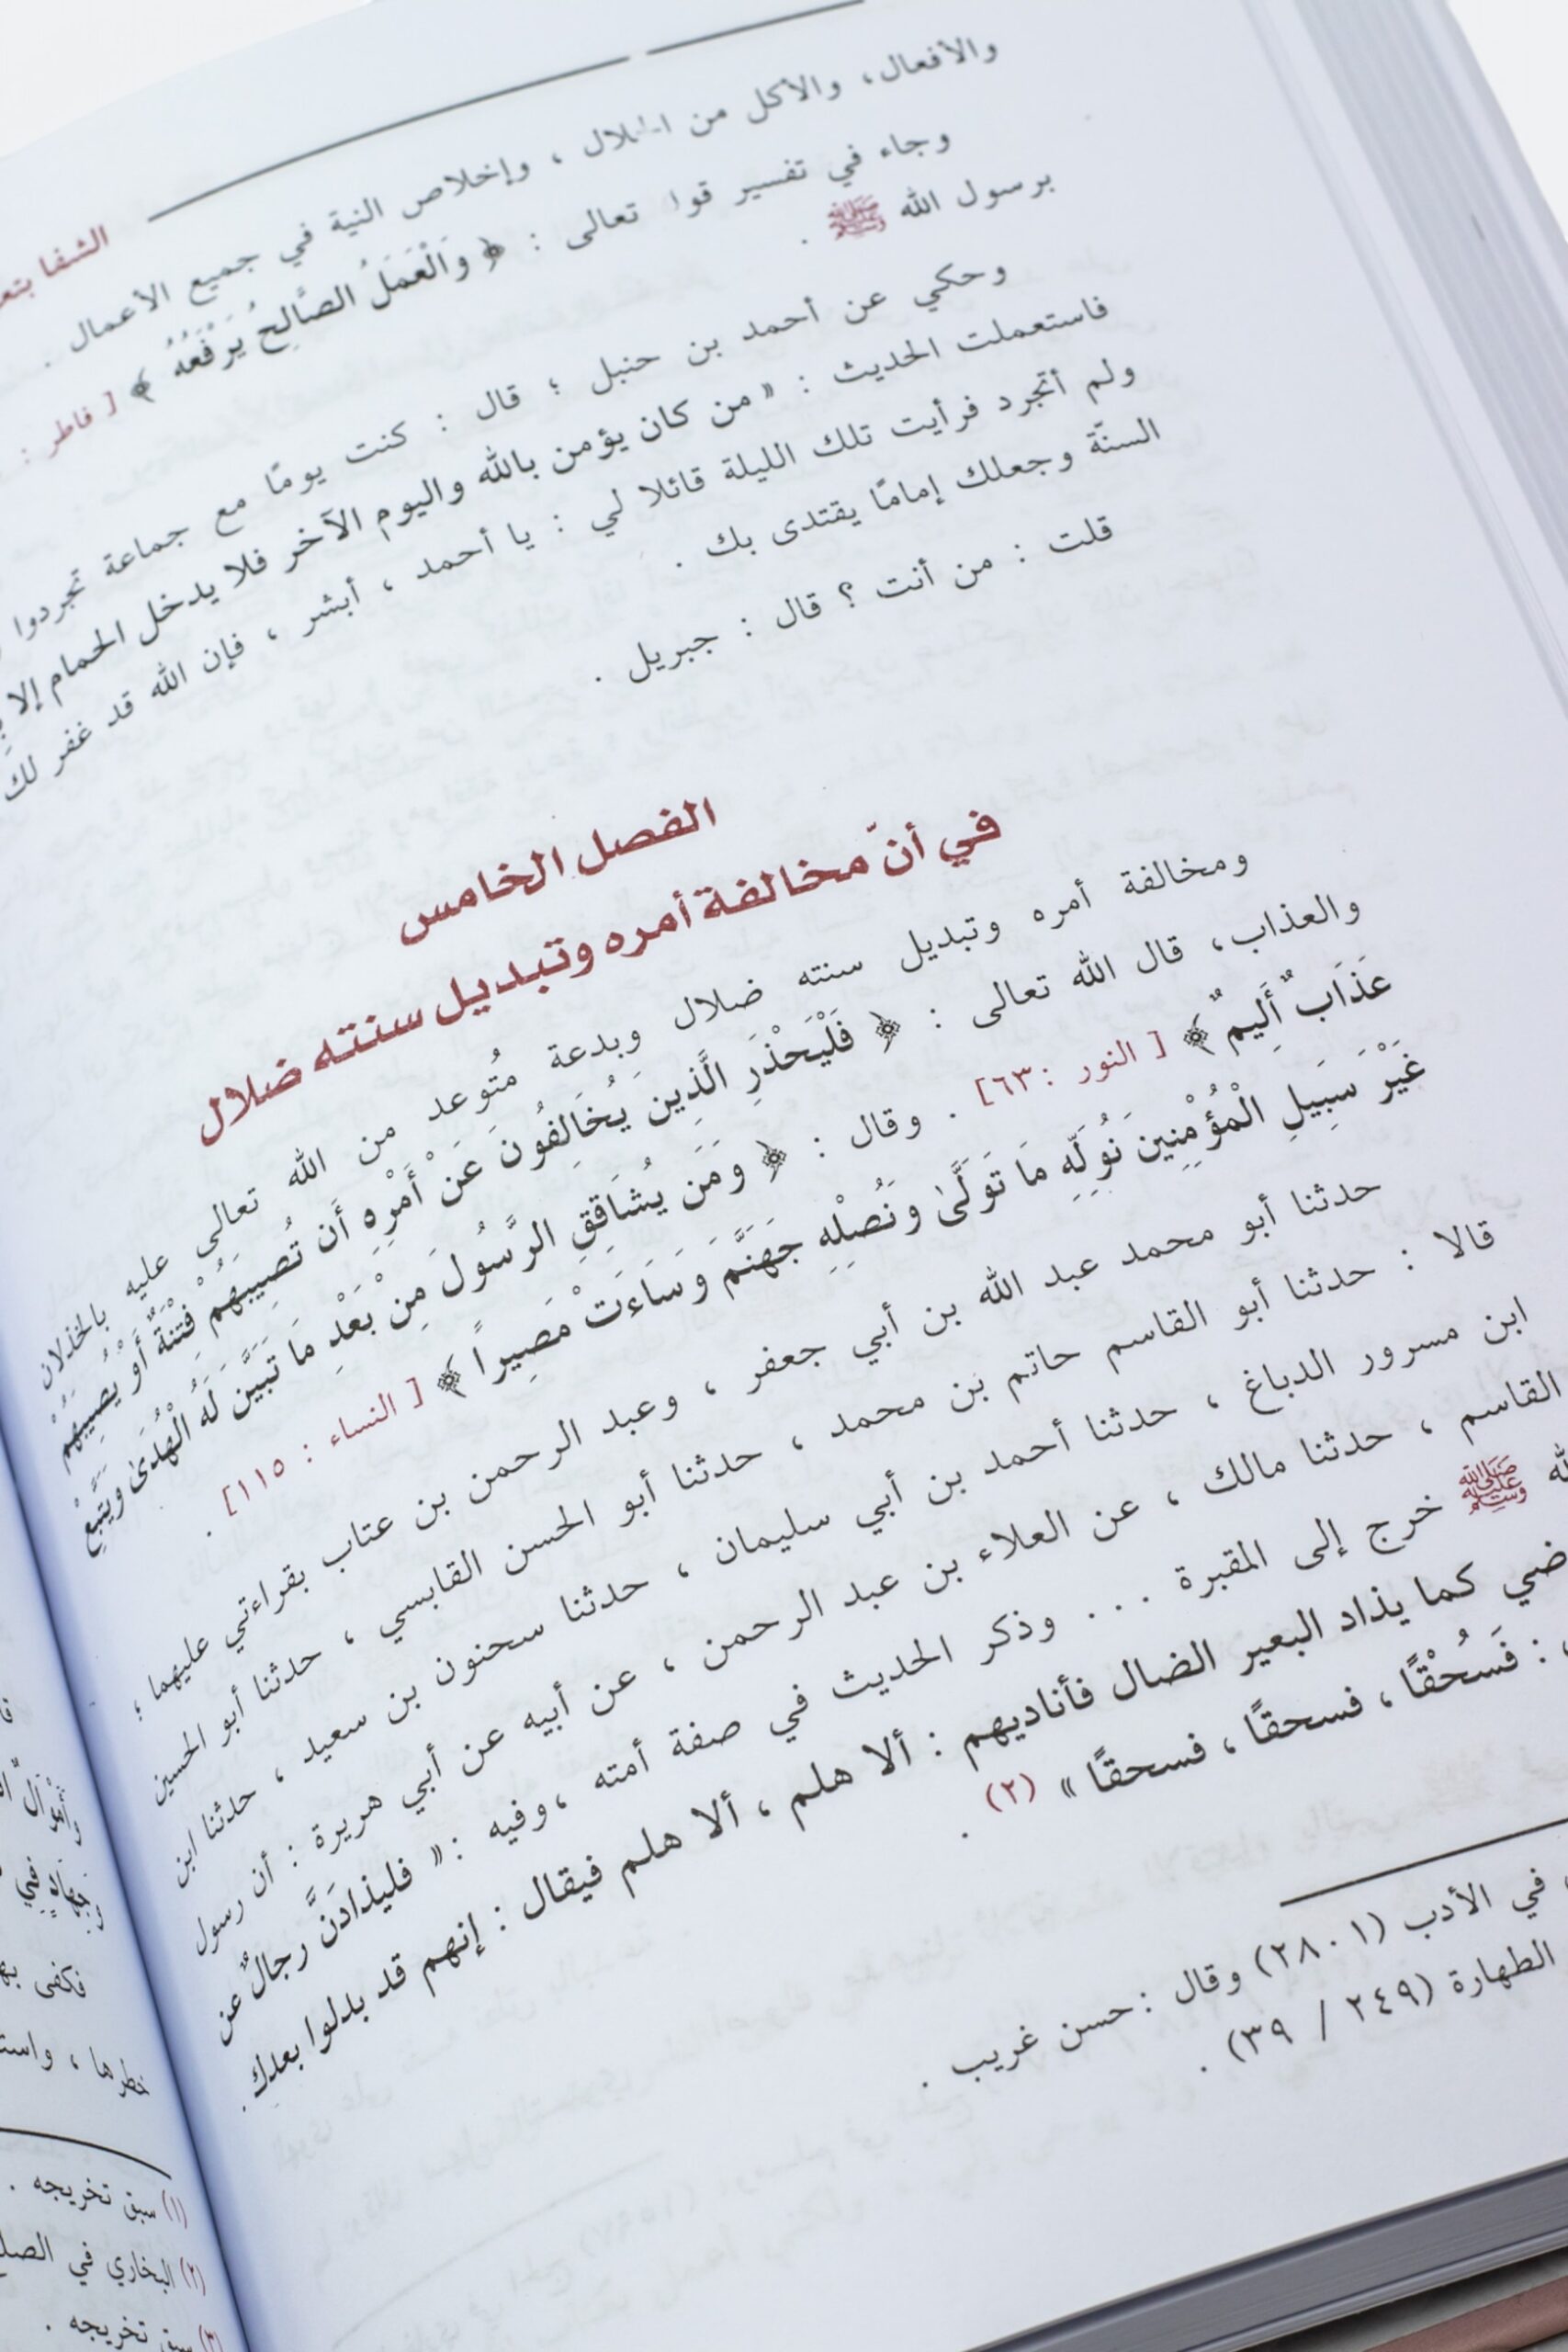 الشفا
والأفعال، والأكل من الحلال ، وإخلاص النية في جميع الأعمال .
وجاء في تفسير قوله تعالى : ﴿ وَالْعَمَلُ الصَّالِحُ يَرْفَعُهُ ﴾ [ فاطر :
برسول الله ﷺ .
وحكي عن أحمد بن حنبل ؛ قال : كنت يومًا مع جماعة تجردوا
فاستعملت الحديث : « من كان يؤمن بالله واليوم الآخر فلا يدخل الحمام إلا
ولم أتجرد فرأيت تلك الليلة قائلا لي : يا أحمد ، أبشر ، فإن الله قد غفر لك
السنّة وجعلك إمامًا يقتدى بك .
قلت : من أنت ؟ قال : جبريل .
الفصل الخامس
في أنّ مخالفة أمره وتبديل سنته ضلال
ومخالفة أمره وتبديل سنته ضلال وبدعة مُتوعد من الله تعالى عليه بالخذلان
والعذاب، قال الله تعالى : ﴿ فَلْيَحْذَرِ الَّذِينَ يُخَالِفُونَ عَنْ أَمْرِهِ أَن تُصِيبَهُمْ فِتْنَةٌ أَوْ يُصِيبَهُمْ
عَذَابٌ أَلِيمٌ ﴾ [ النور : ٦٣] . وقال : ﴿ وَمَن يُشَاقِقِ الرَّسُولَ مِنْ بَعْدِ مَا تَبَيَّنَ لَهُ الْهُدَىٰ وَيَتَّبِعْ
غَيْرَ سَبِيلِ الْمُؤْمِنِينَ نُوَلِّهِ مَا تَوَلَّىٰ وَنُصْلِهِ جَهَنَّمَ وَسَاءَتْ مَصِيرًا ﴾ [ النساء : ١١٥] .
حدثنا أبو محمد عبد الله بن أبي جعفر ، وعبد الرحمن بن عتاب بقراءتي عليهما ؛
قالا : حدثنا أبو القاسم حاتم بن محمد ، حدثنا أبو الحسن القابسي ، حدثنا أبو الحسين
ابن مسرور الدباغ ، حدثنا أحمد بن أبي سليمان ، حدثنا سحنون بن سعيد ، حدثنا ابن
القاسم ، حدثنا مالك ، عن العلاء بن عبد الرحمن ، عن أبيه عن أبي هريرة : أن رسول
ﷺ خرج إلى المقبرة ... وذكر الحديث في صفة أمته ، وفيه : « فليذادَنَّ رجالٌ عن
كما يذاد البعير الضال فأناديهم : ألا هلم ، ألا هلم ، ألا هلم فيقال : إنهم قد بدلوا بعدك .
: فَسُحْقًا ، فسحقًا ، فسحقًا » (٢) .
في الأدب (٢٨٠١) وقال : حسن غريب .
الطهارة (٢٤٩ / ٣٩) .
فكفى
خطرها ،
(١) سبق تخريجه .
(٢) البخاري في
(٣) سبق تخريجه .